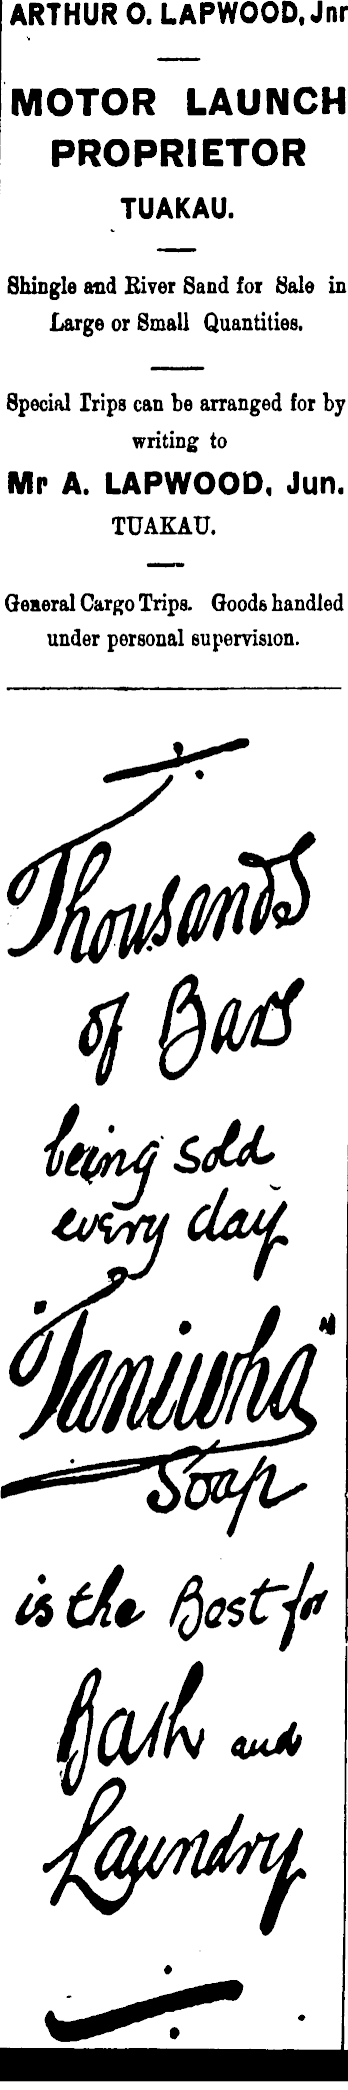 ARTHUR O. LAPWOOD, Jnr
MOTOR LAUNCH
PROPRIETOR
TUAKAU.
Shingle and River Sand for Sale in
Large or Small Quantities.
Special Trips can be arranged for by
writing to
Mr A. LAPWOOD, Jun.
TUAKAU.
General Cargo Trips. Goods handled
under personal supervision.
Thousands
of Bars
being sold
every day
"Taniwha"
Soap
is the Best for
Bath and
Laundry